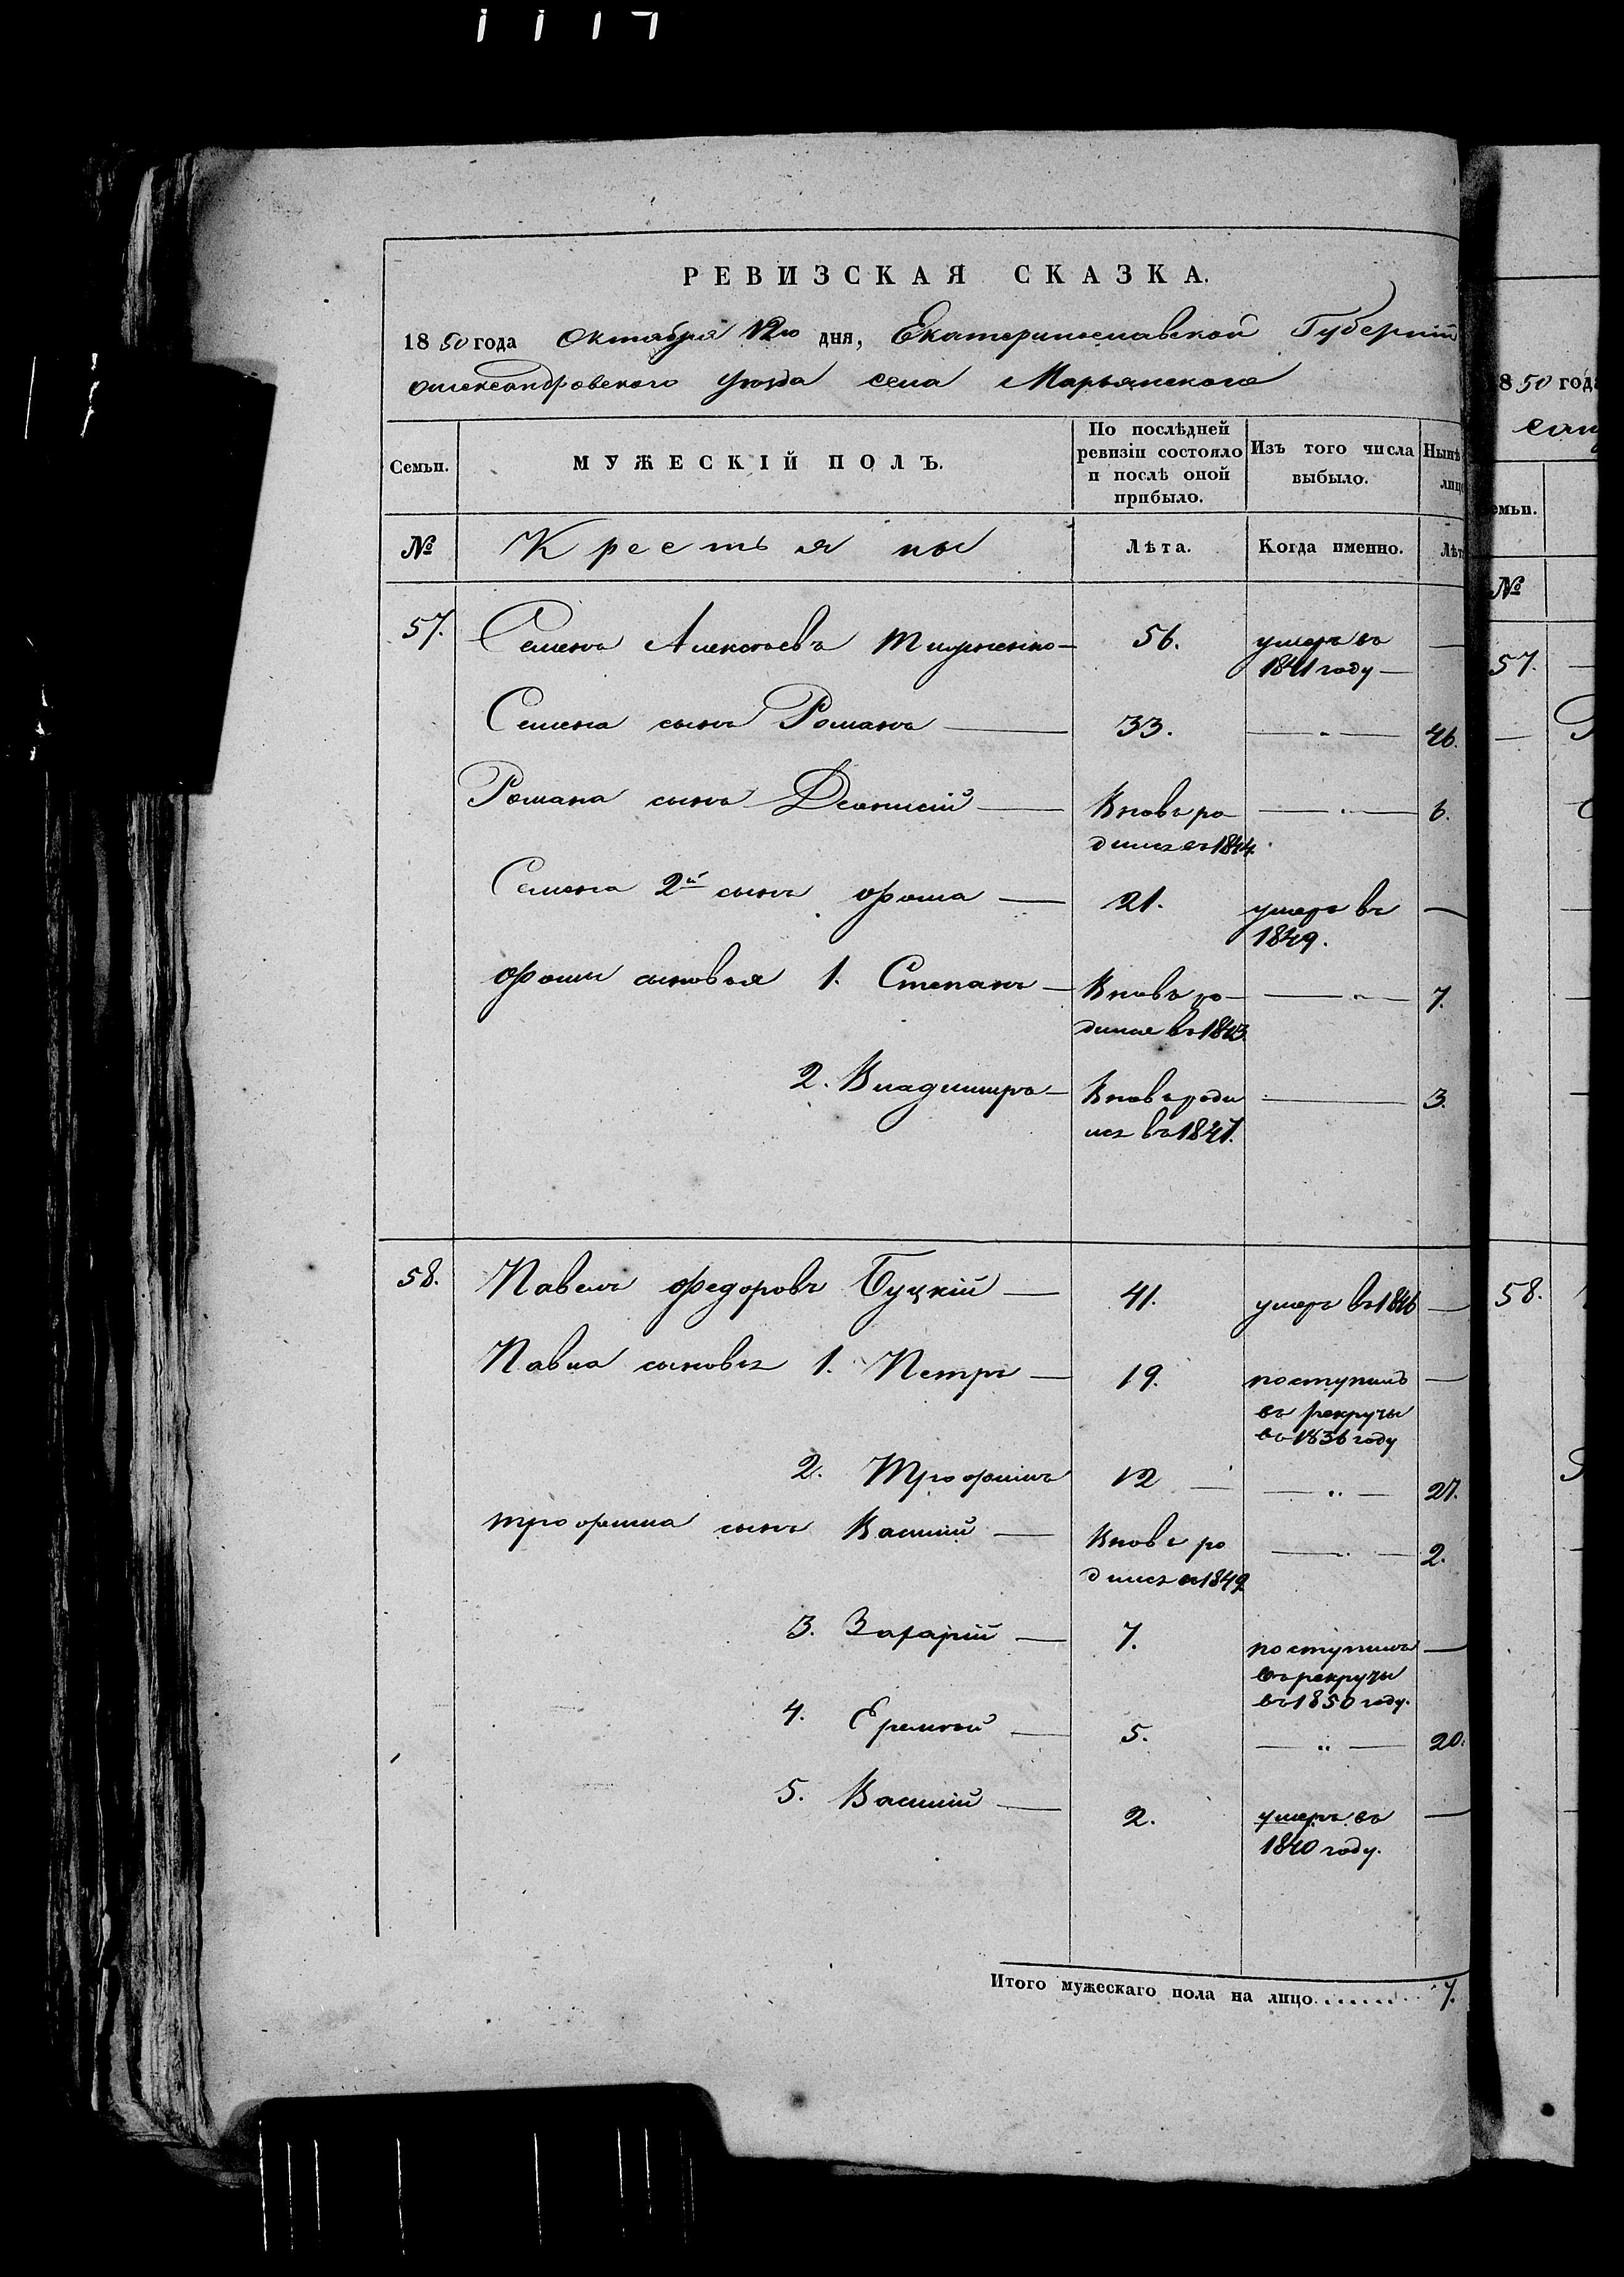 РЕВИЗСКАЯ СКАЗКА.
1850 года Октября 12го дня, Екатеринославской Губерніи
Александровского Уѣзда села Марьянского
Семьи. МУЖЕСКІЙ ПОЛЪ. По послѣдней ревизіи состояло и послѣ оной прибыло. Изъ того числа выбыло. Нынѣ лицо
№ Крестьяны Лѣта. Когда именно. Лѣт
57. Семенъ Алексѣевъ 56. умеръ въ 1841 году —
Семена сынъ Романъ — 33. — 46.
Романа сынъ Деонисій — Вновь родился въ 1844. — 6.
Семена 2й сынъ Фома — 21. умеръ въ 1849. —
Фомы сыновья 1. Степанъ — Вновь родился въ 1843. — 7.
2. Владимиръ — Вновь родился въ 1847. — 3.
58. Павелъ Федоровъ Буцкій — 41. умеръ въ 1846 —
Павла сыновья 1. Петръ — 19. поступилъ въ рекруты въ 1836 году —
2. Трофимъ 12 — — 27.
Трофима сынъ Василій — Вновь родился въ 1849 — 2.
3. Захарій — 7. поступилъ въ рекруты въ 1850 году. —
4. Еремѣй — 5. — 20.
5. Василій — 2. умеръ въ 1840 году. —
Итого мужескаго пола на лицо....... 7.
850 года
емьи.
№
57.
58.